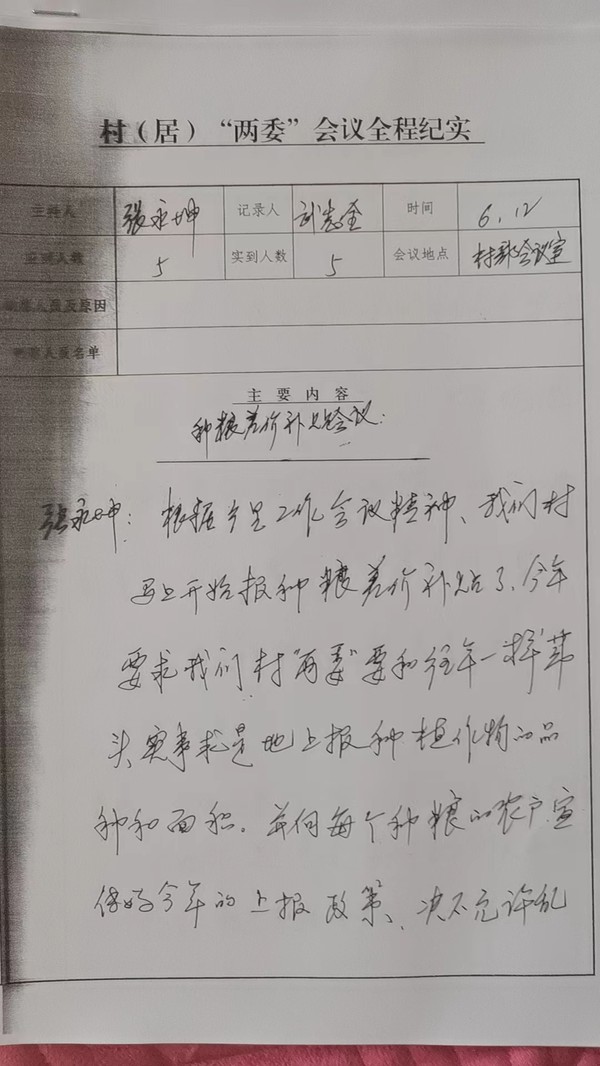 村（居）“两委”会议全程纪实
主持人 张永坤 记录人 刘志全 时间 6.12
应到人数 5 实到人数 5 会议地点 村部会议室
缺席人员及原因
列席人员名单
主要内容
种粮差价补贴会议：
张永坤：根据乡里工作会议精神、我们村
马上开始报种粮差价补贴了、今年
要求我们村“两委”要和往年一样带
头实事求是地上报种植作物的品
种和面积。并向每个种粮的农户宣
传好今年的上报政策、决不允许乱